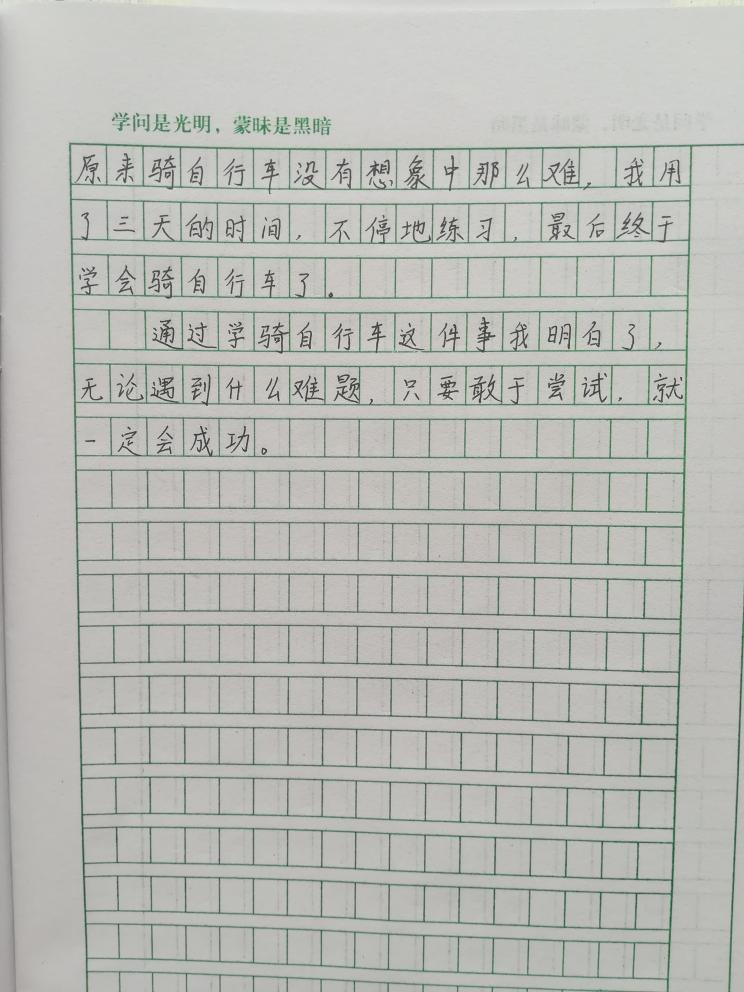 学问是光明，蒙昧是黑暗
原来骑自行车没有想象中那么难，我用
了三天的时间，不停地练习，最后终于
学会骑自行车了。
通过学骑自行车这件事我明白了，
无论遇到什么难题，只要敢于尝试，就
一定会成功。